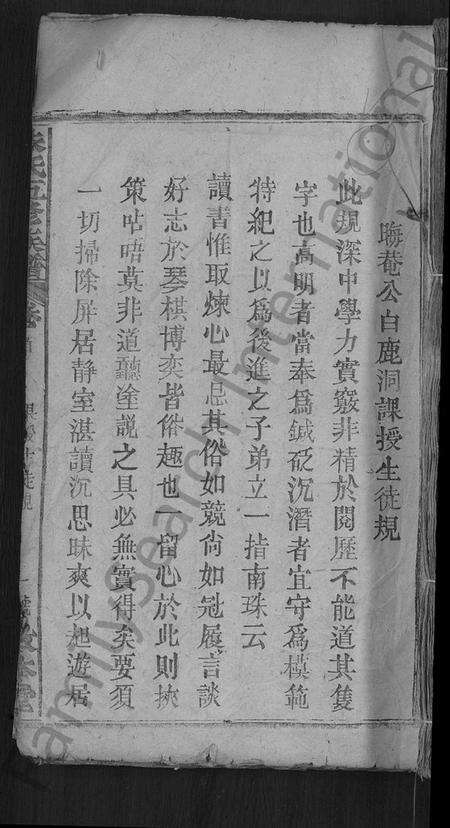 晦菴公白鹿洞課授生徒規
此規深中學力實竅非精於閱歷不能道其隻
字也高明者當奉為鍼砭沉潛者宜守為模範
特紀之以為後進之子弟立一指南珠云
讀書惟取煉心最忌其俗如競尙如冠履言談
好志於琴棋博奕皆俗趣也一留心於此則挾
策呫唔莫非道聽塗説之具必無實得矣要須
一切掃除屏居静室湛讀沉思昧爽以起遊居
氏五修族譜
FamilySearch International